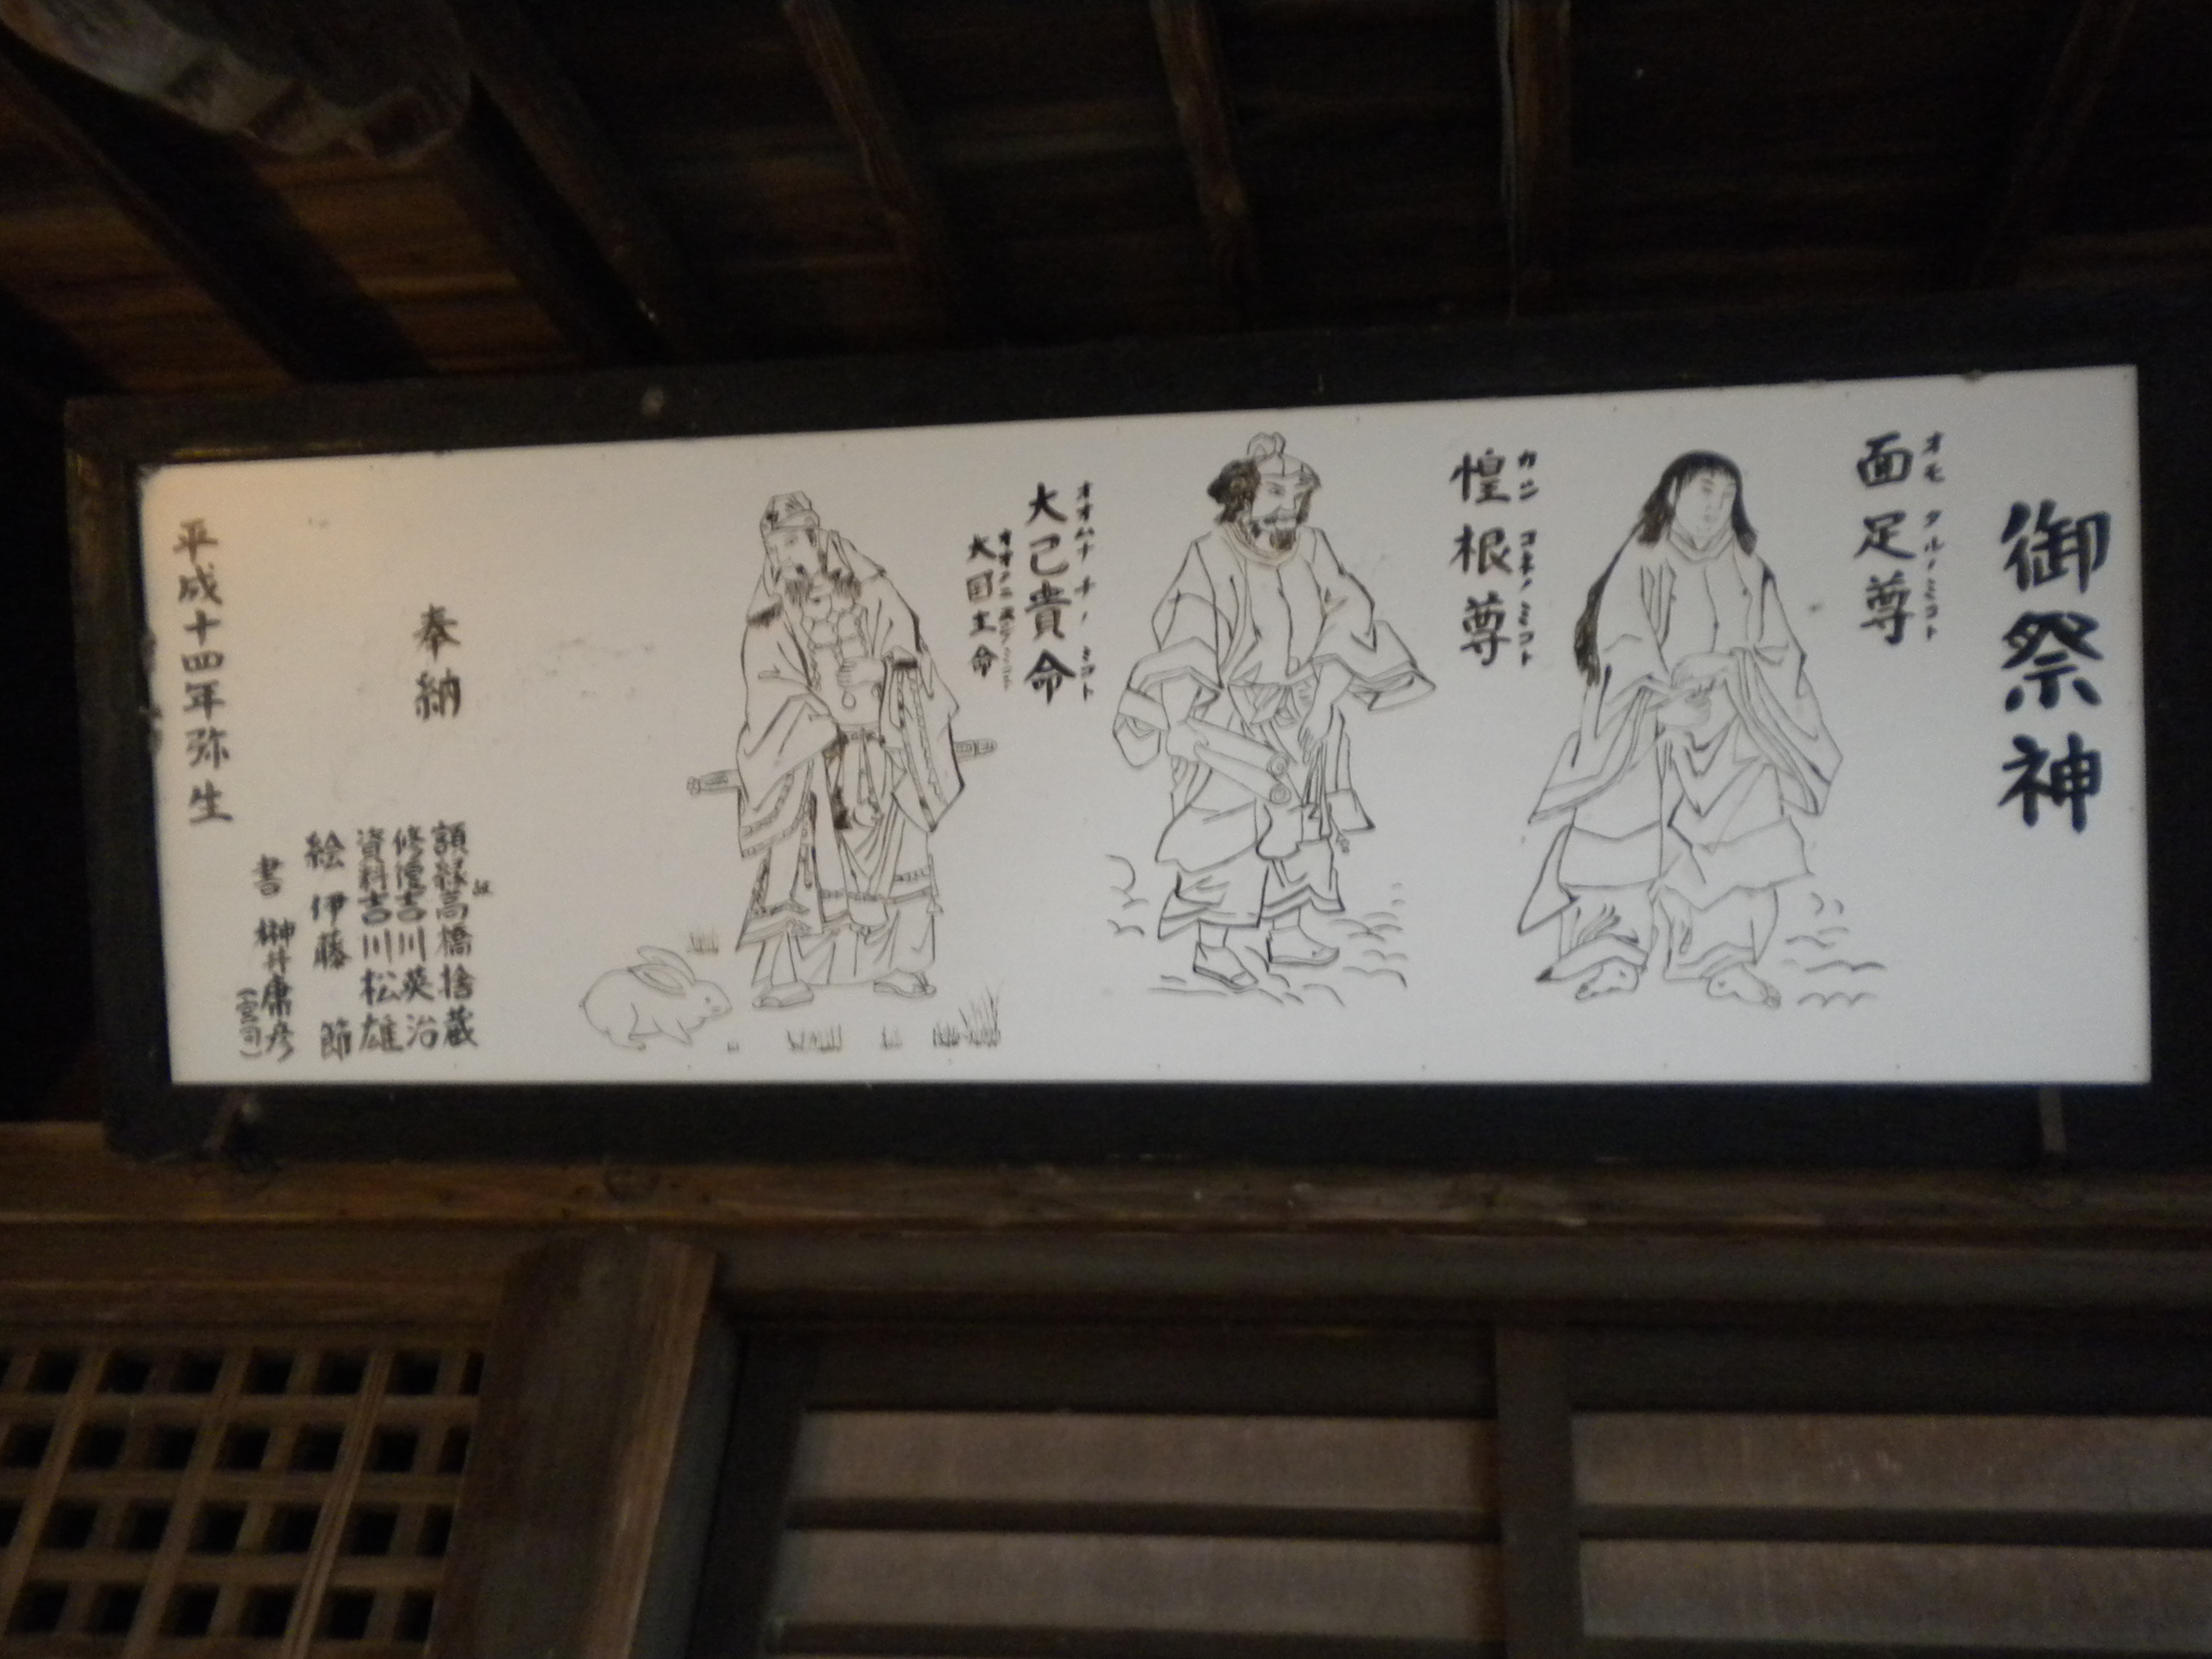 御祭神
面足尊
オモタルノミコト
惶根尊
カシコネノミコト
大己貴命
オオムナチノミコト
大国主命
オオクニヌシノミコト
奉納
額縁高橋捨蔵
修復吉川英治
資料吉川松雄
絵伊藤節
書榊井庸彦
(宮司)
平成十四年弥生